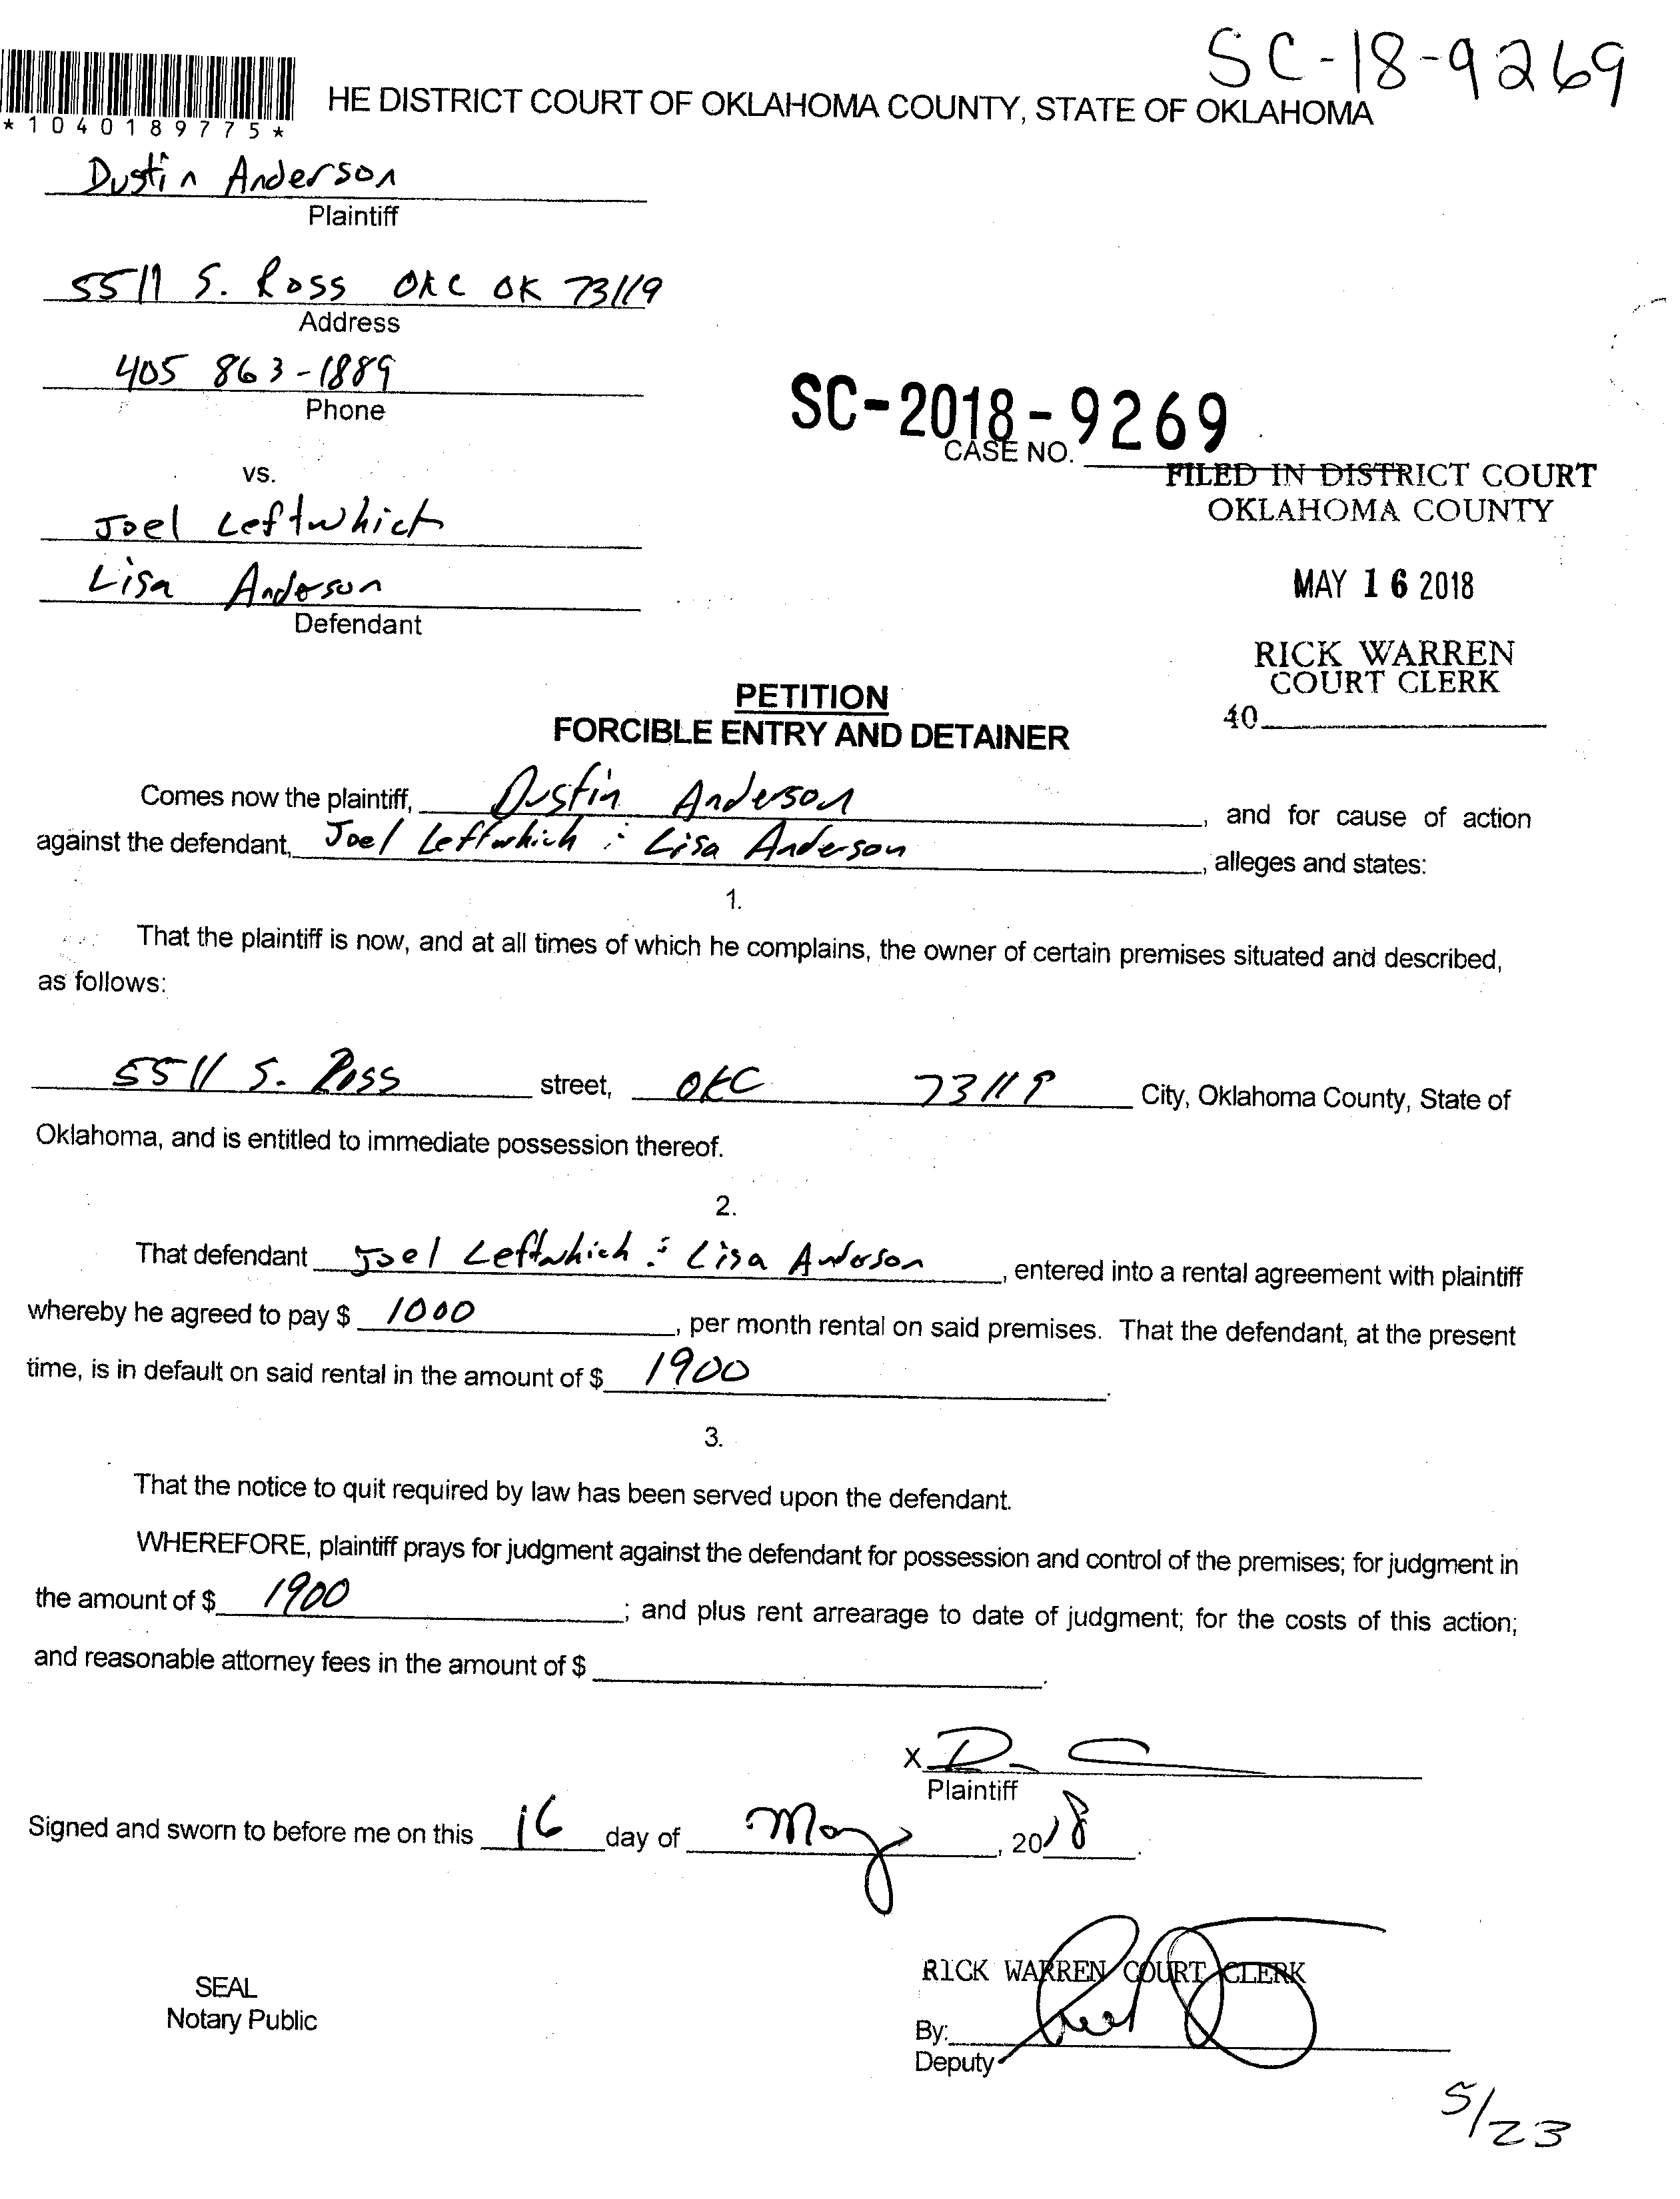 SC-18-9269
*1040189775*
HE DISTRICT COURT OF OKLAHOMA COUNTY, STATE OF OKLAHOMA
Dustin Anderson
Plaintiff
5511 S. Ross OKC OK 73119
Address
405 863-1889
Phone
SC-2018-9269
CASE NO.
vs.
FILED IN DISTRICT COURT
OKLAHOMA COUNTY
Joel Leftwhich
MAY 16 2018
Lisa Anderson
Defendant
RICK WARREN
COURT CLERK
40
PETITION
FORCIBLE ENTRY AND DETAINER
Comes now the plaintiff, Dustin Anderson, and for cause of action
against the defendant, Joel Leftwhich : Lisa Anderson, alleges and states:
1.
That the plaintiff is now, and at all times of which he complains, the owner of certain premises situated and described,
as follows:
5511 S. Ross street, OKC 73119 City, Oklahoma County, State of
Oklahoma, and is entitled to immediate possession thereof.
2.
That defendant Joel Leftwhich : Lisa Anderson, entered into a rental agreement with plaintiff
whereby he agreed to pay $ 1000, per month rental on said premises. That the defendant, at the present
time, is in default on said rental in the amount of $ 1900.
3.
That the notice to quit required by law has been served upon the defendant.
WHEREFORE, plaintiff prays for judgment against the defendant for possession and control of the premises; for judgment in
the amount of $ 1900; and plus rent arrearage to date of judgment; for the costs of this action;
and reasonable attorney fees in the amount of $ .
X
Plaintiff
Signed and sworn to before me on this 16 day of May, 2018.
RICK WARREN COURT CLERK
SEAL
Notary Public
By:
Deputy
5/23